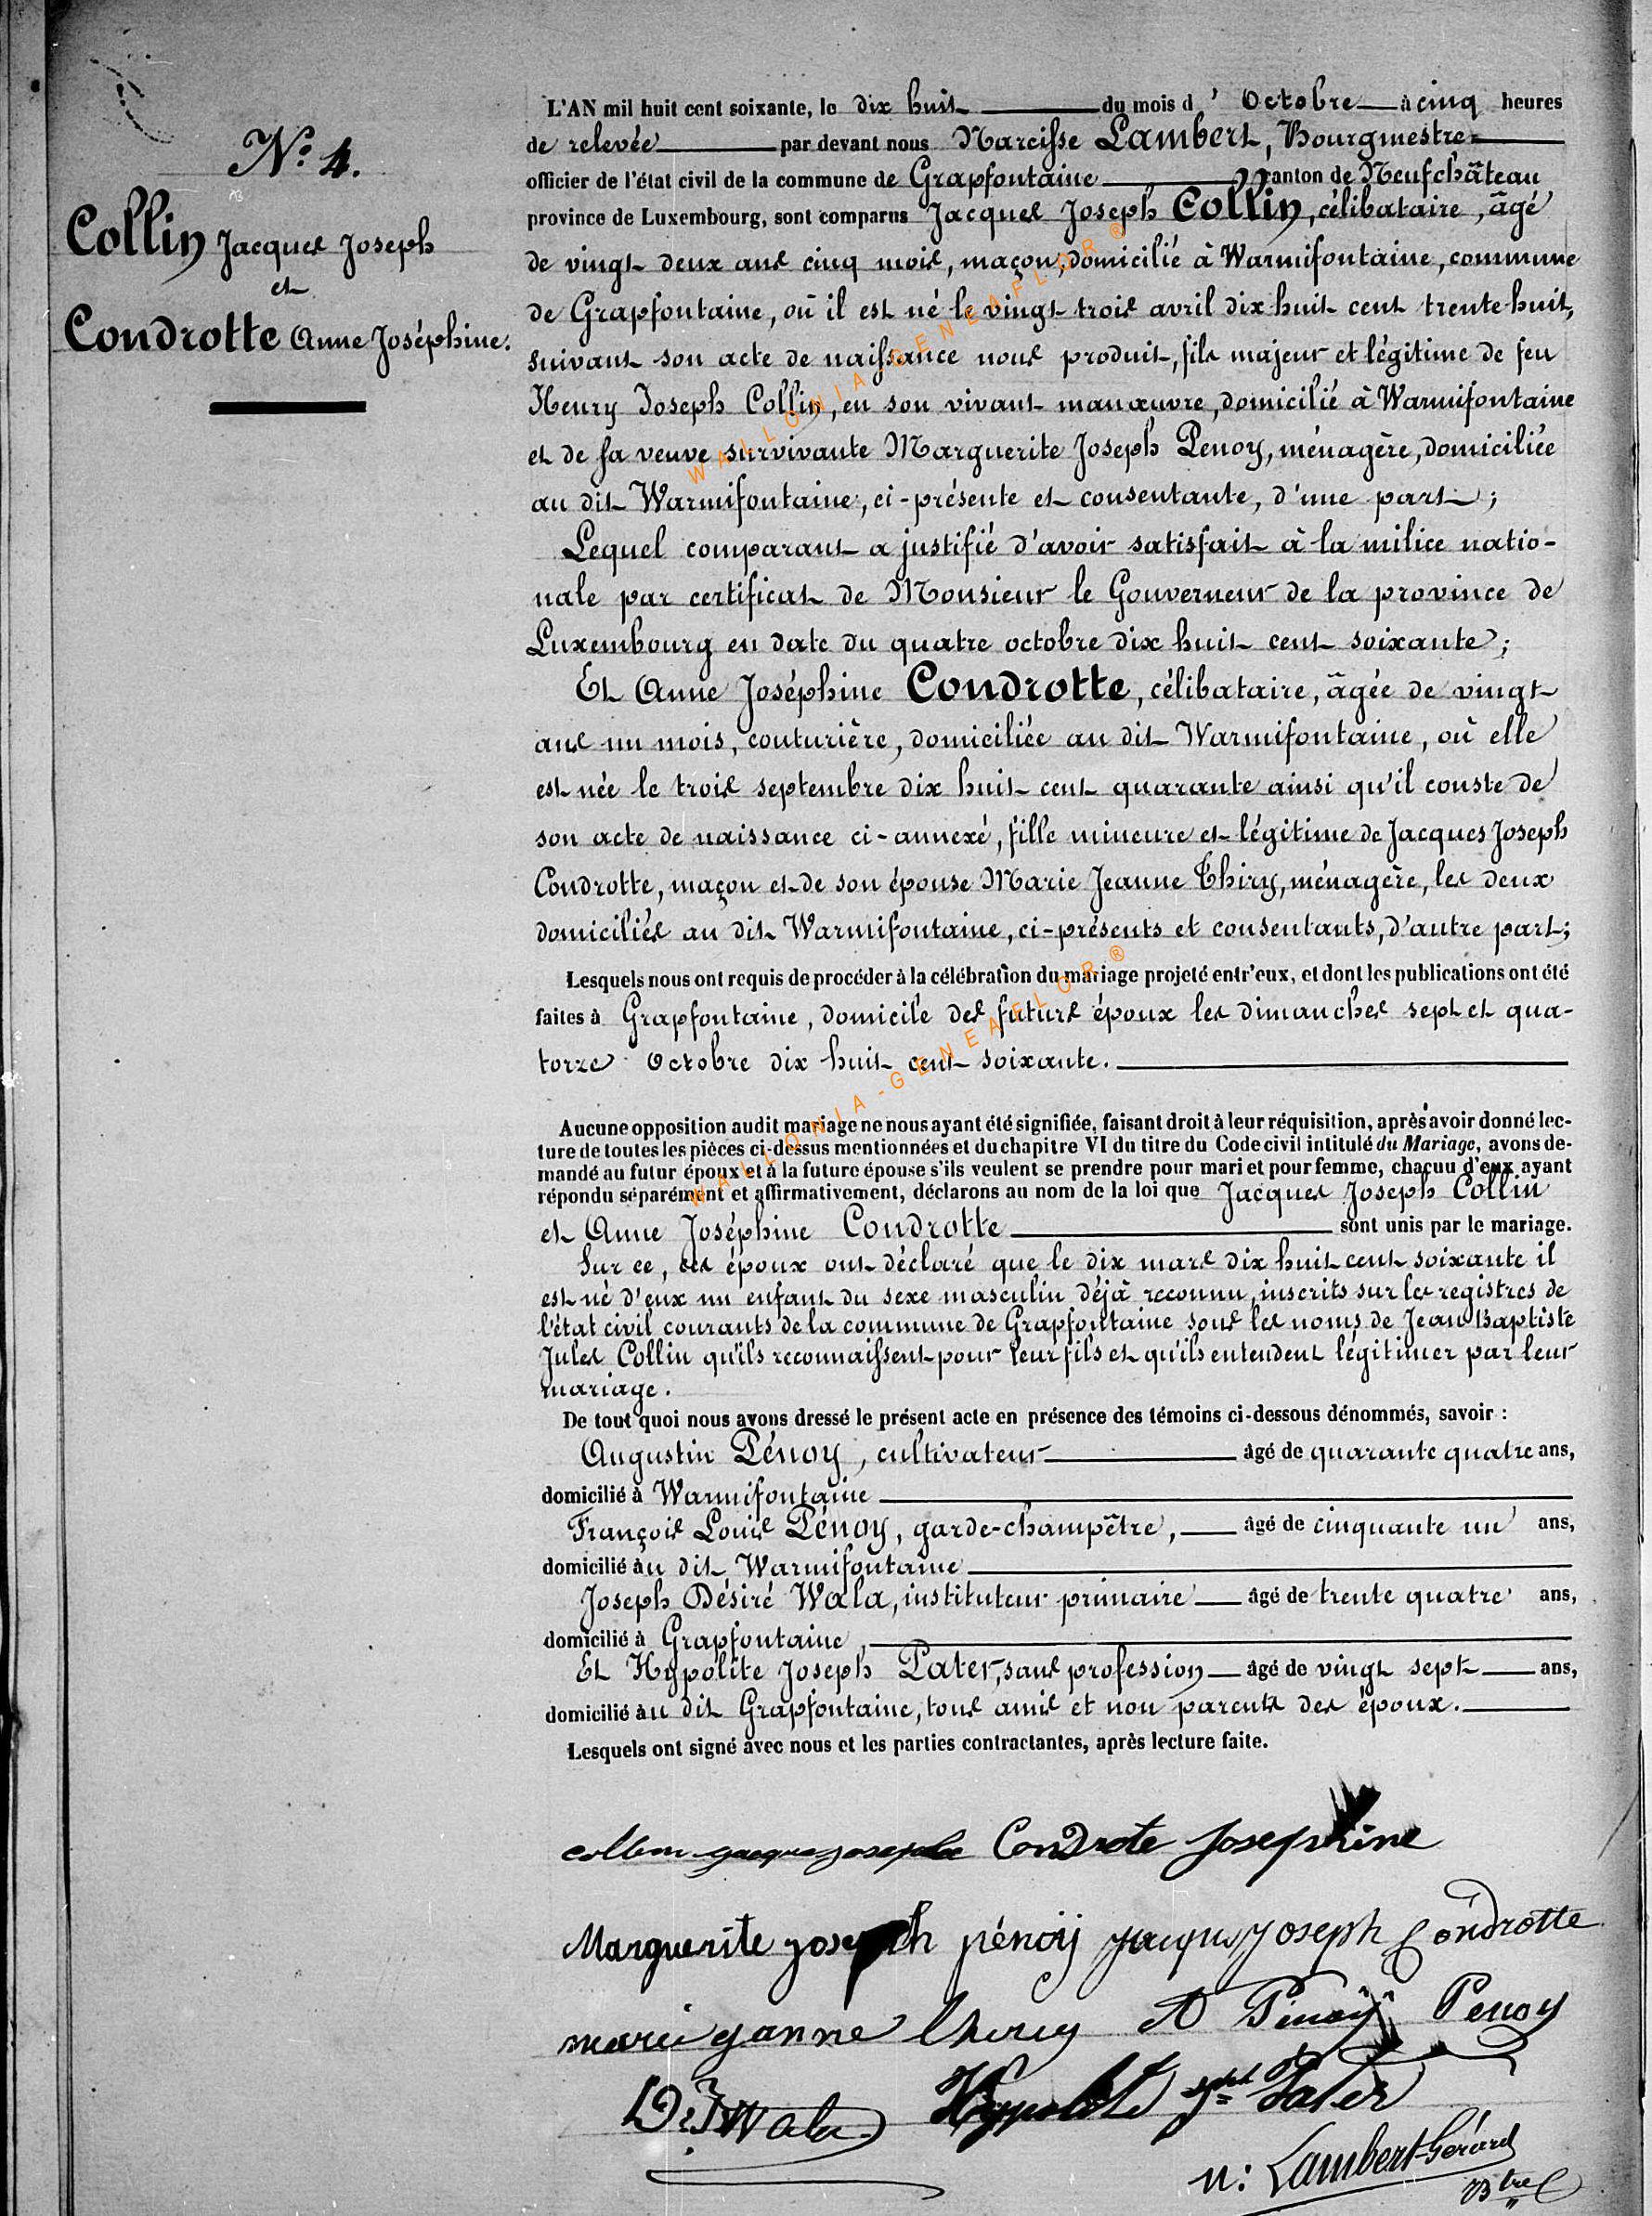 N.º 4.
Collin Jacques Joseph
et
Condrotte Anne Joséphine.
L'AN mil huit cent soixante, le dix huit du mois d' Octobre à cinq heures
de relevée par devant nous Narcisse Lambert, Bourgmestre
officier de l'état civil de la commune de Grapfontaine canton de Neufchâteau
province de Luxembourg, sont comparus Jacques Joseph Collin, célibataire, âgé
de vingt deux ans cinq mois, maçon, domicilié à Warmifontaine, commune
de Grapfontaine, où il est né le vingt trois avril dix huit cent trente huit,
suivant son acte de naissance nous produit, fils majeur et légitime de feu
Henry Joseph Collin, en son vivant manœuvre, domicilié à Warmifontaine
et de sa veuve survivante Marguerite Joseph Penoy, ménagère, domiciliée
au dit Warmifontaine, ci-présente et consentante, d'une part;
Lequel comparant a justifié d'avoir satisfait à la milice natio-
nale par certificat de Monsieur le Gouverneur de la province de
Luxembourg en date du quatre octobre dix huit cent soixante;
Et Anne Joséphine Condrotte, célibataire, âgée de vingt
ans un mois, couturière, domiciliée au dit Warmifontaine, où elle
est née le trois septembre dix huit cent quarante ainsi qu'il conste de
son acte de naissance ci-annexé, fille mineure et légitime de Jacques Joseph
Condrotte, maçon et de son épouse Marie Jeanne Thiry, ménagère, les deux
domiciliés au dit Warmifontaine, ci-présents et consentants, d'autre part;
Lesquels nous ont requis de procéder à la célébration du mariage projeté entr'eux, et dont les publications ont été
faites à Grapfontaine, domicile des futurs époux les dimanches sept et qua-
torze Octobre dix huit cent soixante.
Aucune opposition audit mariage ne nous ayant été signifiée, faisant droit à leur réquisition, après avoir donné lec-
ture de toutes les pièces ci-dessus mentionnées et du chapitre VI du titre du Code civil intitulé du Mariage, avons de-
mandé au futur époux et à la future épouse s'ils veulent se prendre pour mari et pour femme, chacuu d'eux ayant
répondu séparément et affirmativement, déclarons au nom de la loi que Jacques Joseph Collin
et Anne Joséphine Condrotte sont unis par le mariage.
Sur ce, les époux ont déclaré que le dix mars dix huit cent soixante il
est né d'eux un enfant du sexe masculin déjà reconnu, inscrits sur les registres de
l'état civil courants de la commune de Grapfontaine sous les noms de Jean Baptiste
Jules Collin qu'ils reconnaissent pour leur fils et qu'ils entendent légitimer par leur
mariage.
De tout quoi nous avons dressé le présent acte en présence des témoins ci-dessous dénommés, savoir :
Augustin Pénoy, cultivateur âgé de quarante quatre ans,
domicilié à Warmifontaine
François Louis Pénoy, garde-champêtre, âgé de cinquante un ans,
domicilié àu dit Warmifontaine
Joseph Désiré Wala, instituteur primaire âgé de trente quatre ans,
domicilié à Grapfontaine,
Et Hypolite Joseph Pater, sans profession âgé de vingt sept ans,
domicilié àu dit Grapfontaine, tous amis et non parents des époux.
Lesquels ont signé avec nous et les parties contractantes, après lecture faite.
collin jacque joseph Condrote Josephine
Marguerite joseph pénoij jacques joseph Condrotte
marie janne thiry A Pénoÿ Penoy
D. J Wala Hyppolite Jph Pater
N: Lambert-Gérard
Btre
WALLONIA-GENEAFLOR ®
WALLONIA-GENEAFLOR ®